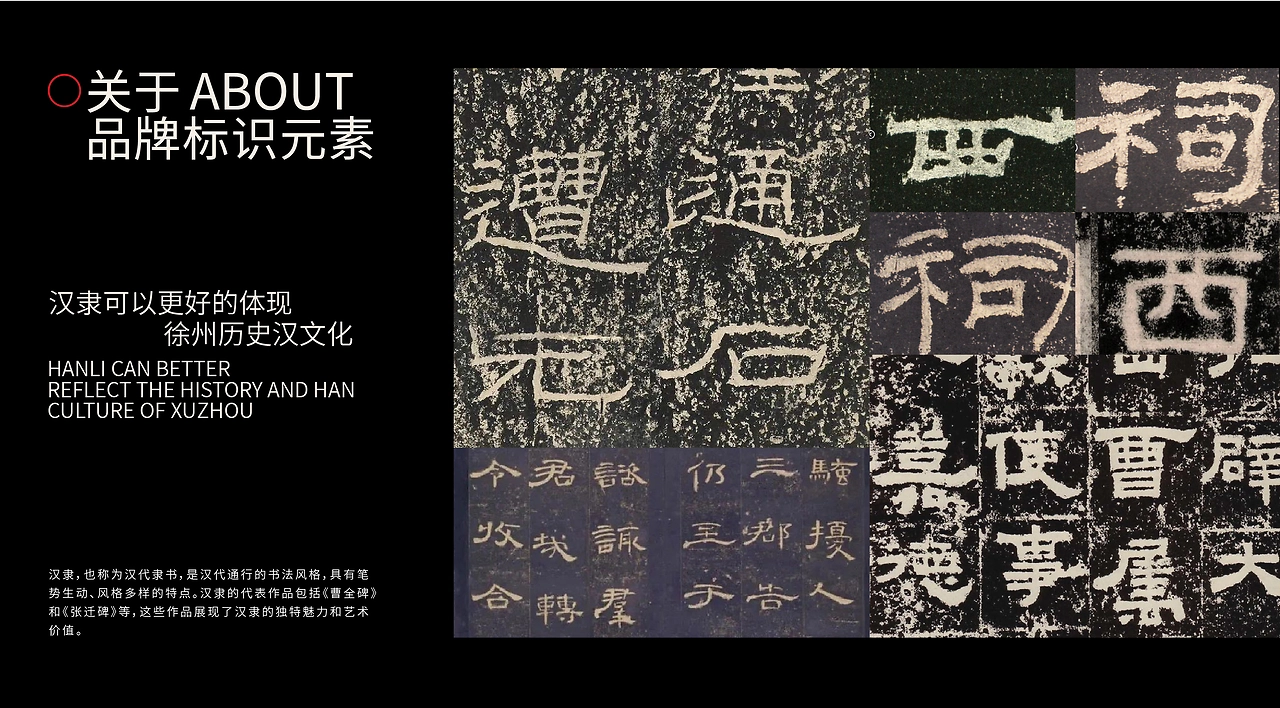 关于 ABOUT
品牌标识元素
汉隶可以更好的体现
徐州历史汉文化
HANLI CAN BETTER
REFLECT THE HISTORY AND HAN
CULTURE OF XUZHOU
汉隶，也称为汉代隶书，是汉代通行的书法风格，具有笔
势生动、风格多样的特点。汉隶的代表作品包括《曹全碑》
和《张迁碑》等，这些作品展现了汉隶的独特魅力和艺术
价值。
通石
遭
西
祠
祠
西
騷擾人
三郡告
仍
君
令收合
大
曹属
使事
德